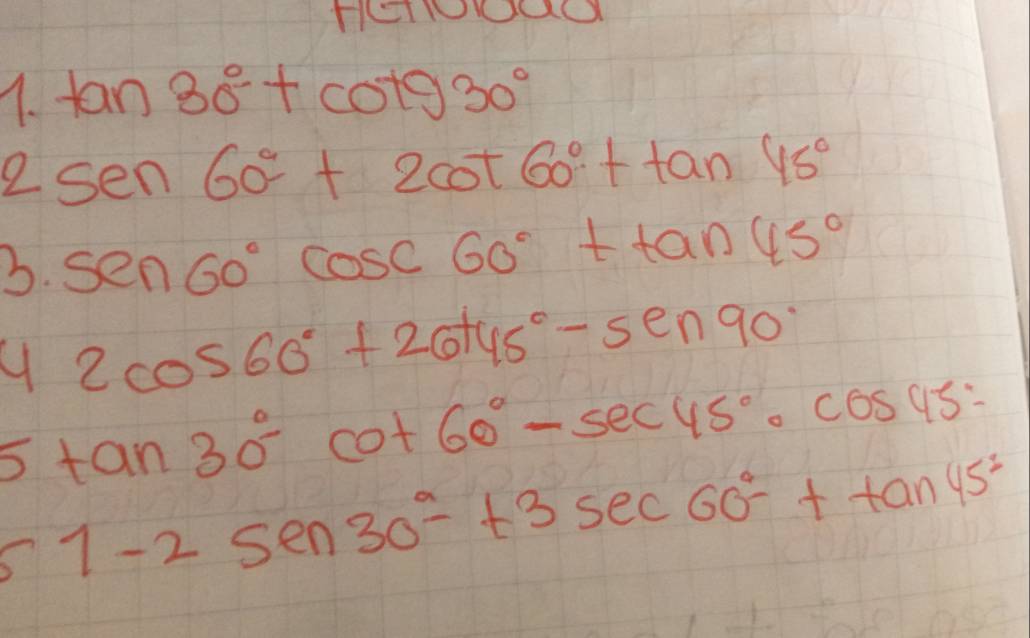 Actividad
1. tan 30° + cotg 30°
2 sen 60° + 2cot 60° + tan 45°
3. sen 60° cosc 60° + tan 45°
4 2cos 60° + 2cot 45° - sen 90°
5 tan 30° cot 60° - sec 45° . cos 45°
1 - 2 sen 30° + 3 sec 60° + tan 45°